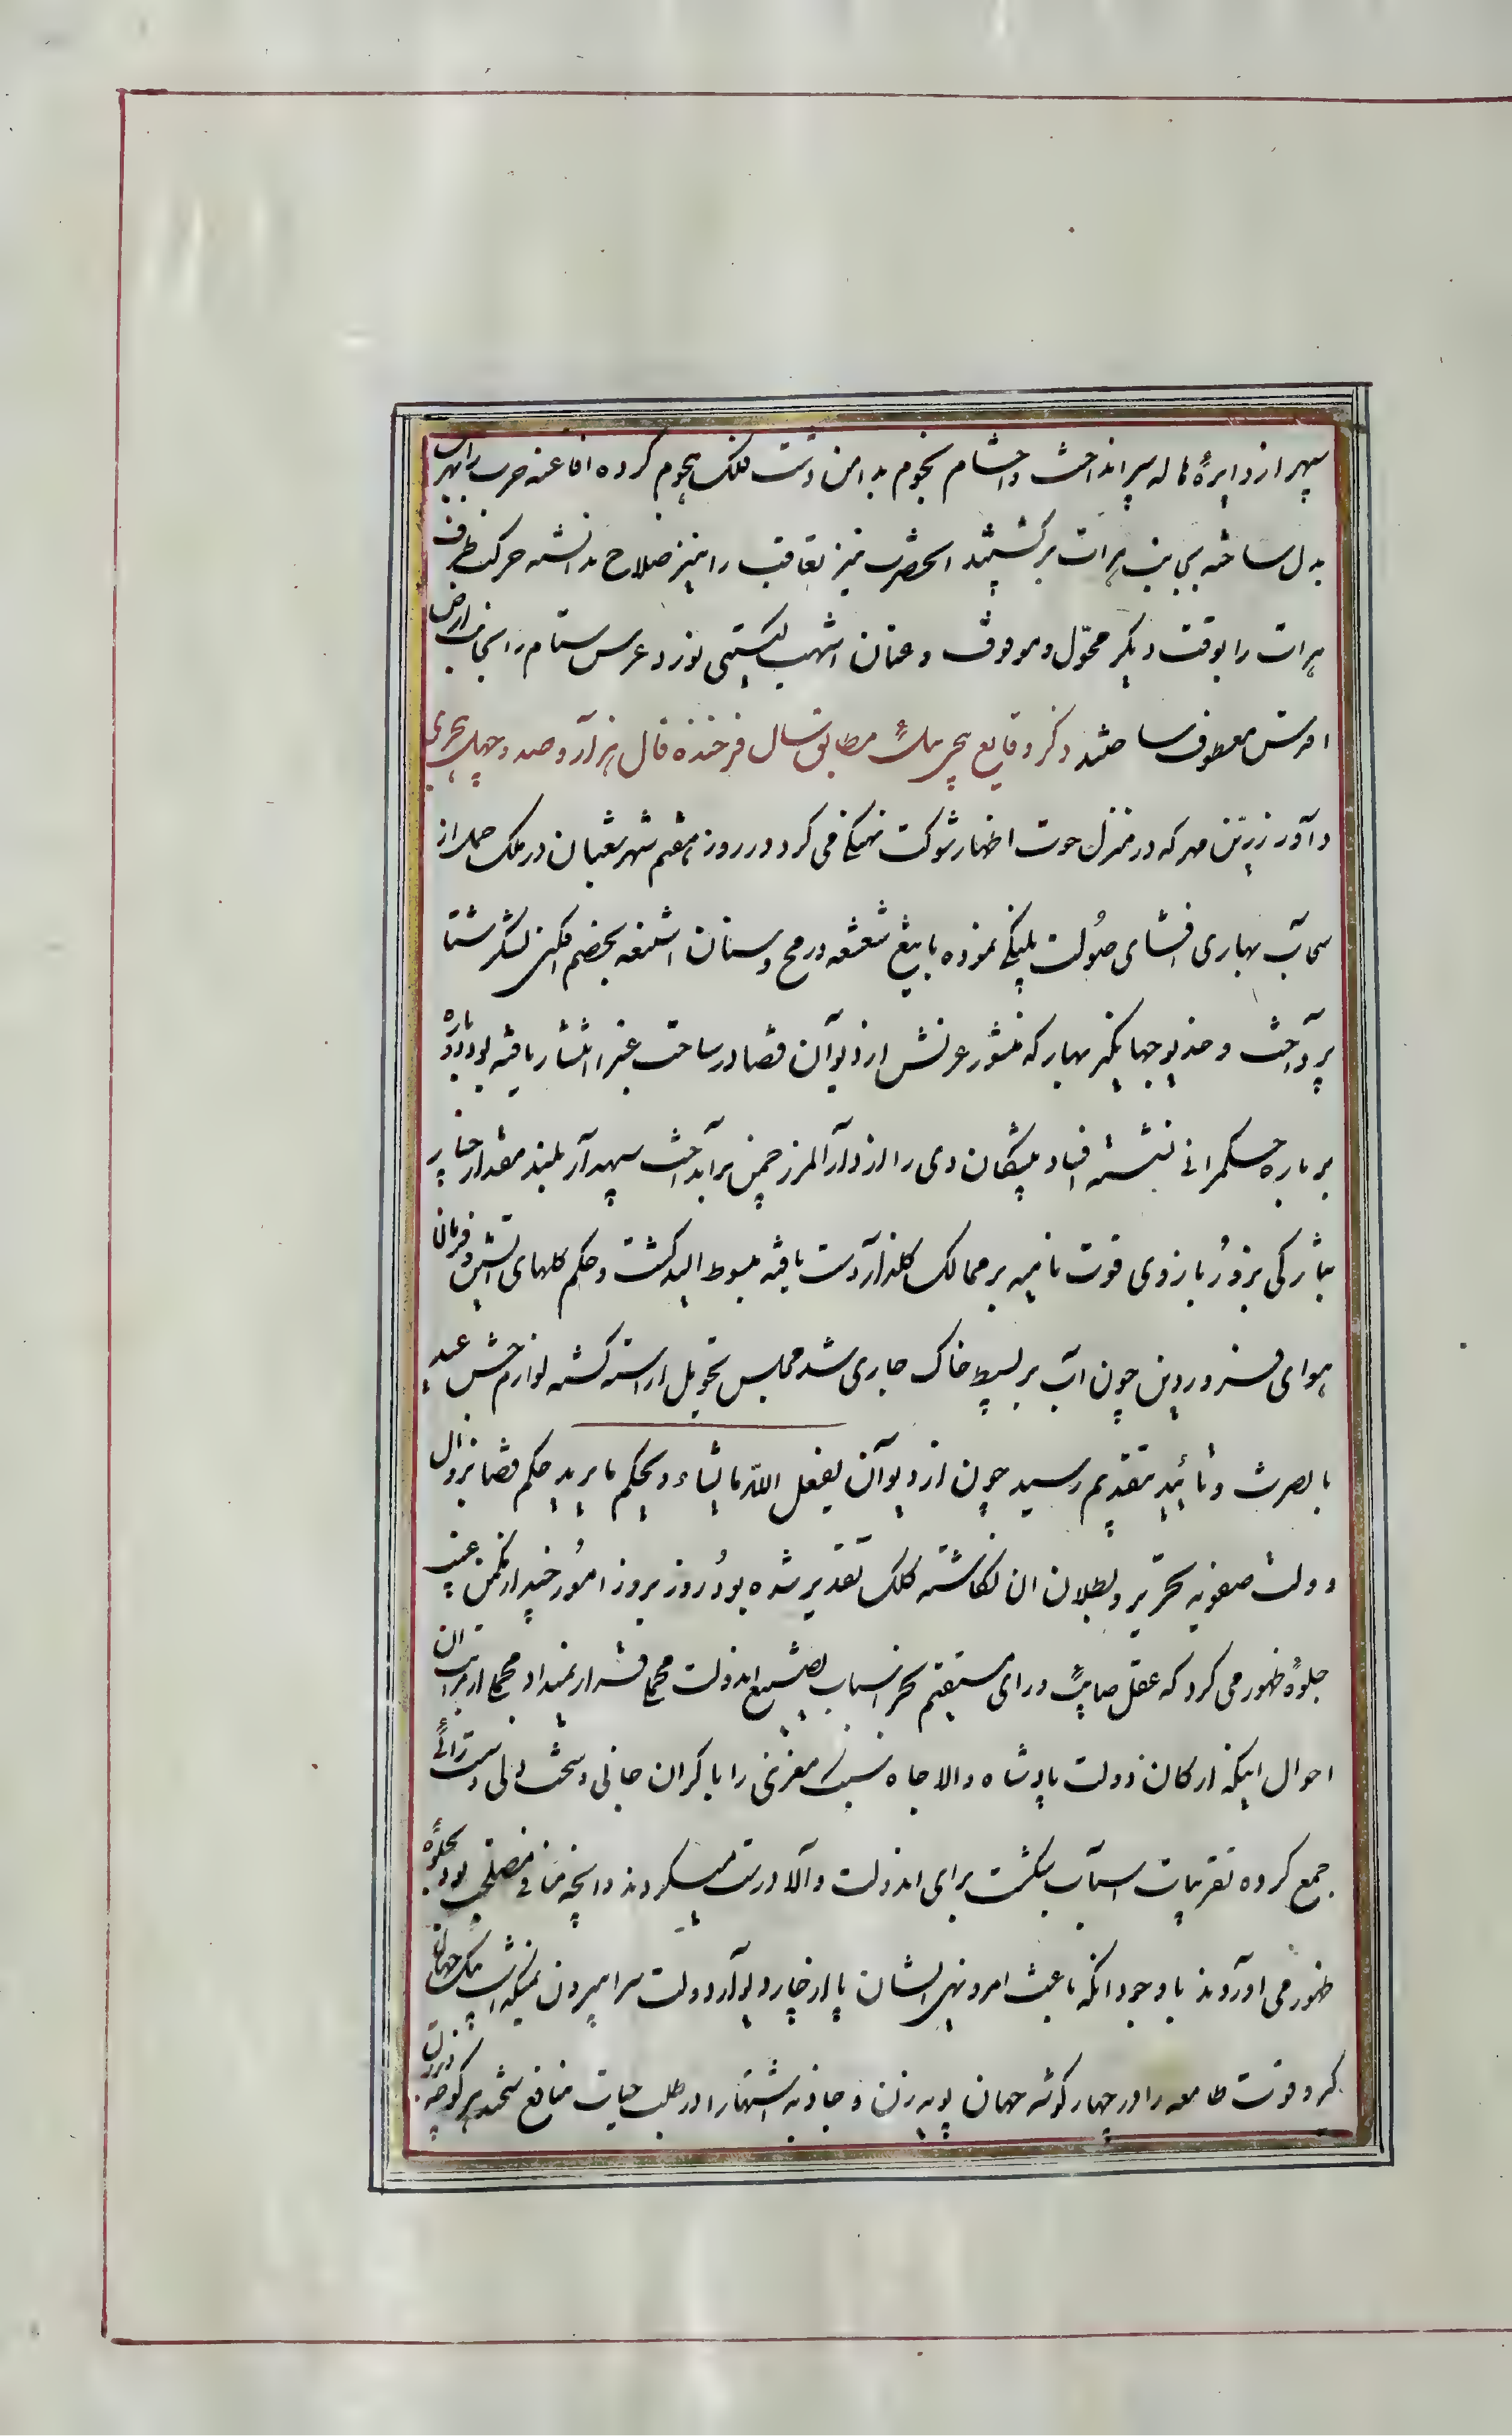 سپهر از دایرهٔ هاله سپر انداخت و احشام نجوم بدامن دشت فلک هجوم کرده افاغنه حرب را بهرب
بدل ساخته بجانب هرات برگشتند آنحضرت نیز تعاقب را نیز صلاح ندانسته حرکت طرف
هرات را بوقت دیگر محول و موقوف و عنان اشهب گیتی نورد عرس ستام را بجانب ارض
اقدس معطوف ساختند ذکر وقایع پیچی ئیل مطابق سال فرخنده فال هزار و صد و چهل هجری
داور زرین مهر که در منزل حوت اظهار شوکت نهنگی می کرد در روز هفتم شهر شعبان در ملک حمل از
سحاب بهاری افشای صولت پلنگی نموده با تیغ شعشعه و رمح و سنان اشعه بخصم افکنی لشکر شتا
پرداخت و خدیو جهانگیر بهار که منشور عزتش از دیوان قضا در ساحت غبرا انتشار یافته بود
بر باره حکمرانی نشسته افساد پیشگان دی را از دار المرز چمن برانداخت سپهدار بلند مقدار چنار
بزور بازوی قوت نامیه بر ممالک گلزار دست یافته مبسوط الید گشت و حکم گلهای آتشین و فرمان
هوای فروردین چون آب بر بسیط خاک جاری شد مجلس تحویل آراسته گشته لوازم جشن عید
با نصرت و تایید بتقدیم رسید چون از دیوان یفعل الله ما یشاء و یحکم ما یرید حکم قضا بزوال
دولت صفویه تحریر و بطلان آن نگاشته کلک تقدیر شده بود روز بروز امور چند از مکمن غیب
جلوهٔ ظهور می کرد که عقل صایب و رای مستقیم بجز اسباب تضییع اندولت محملی قرار نمیداد مجملا از مراتب آن
احوال اینکه ارکان دولت پادشاه والا جاه سبک مغزی را با گران جانی و سخت دلی و سست رائی
جمع کرده تقریبات اسباب شکست برای اندولت والا درست میکردند و آنچه منافی مصلحت بود بجلوهٔ
ظهور می آوردند با وجود آنکه باعث امر و نهی ایشان پا از چار دیوار دولت سرا بیرون نمیگذاشت پیک جهان
گرد قوت طامعه را در چهار گوشه جهان پویه زن و جاذبه اشتها را در طلب حیات منافع